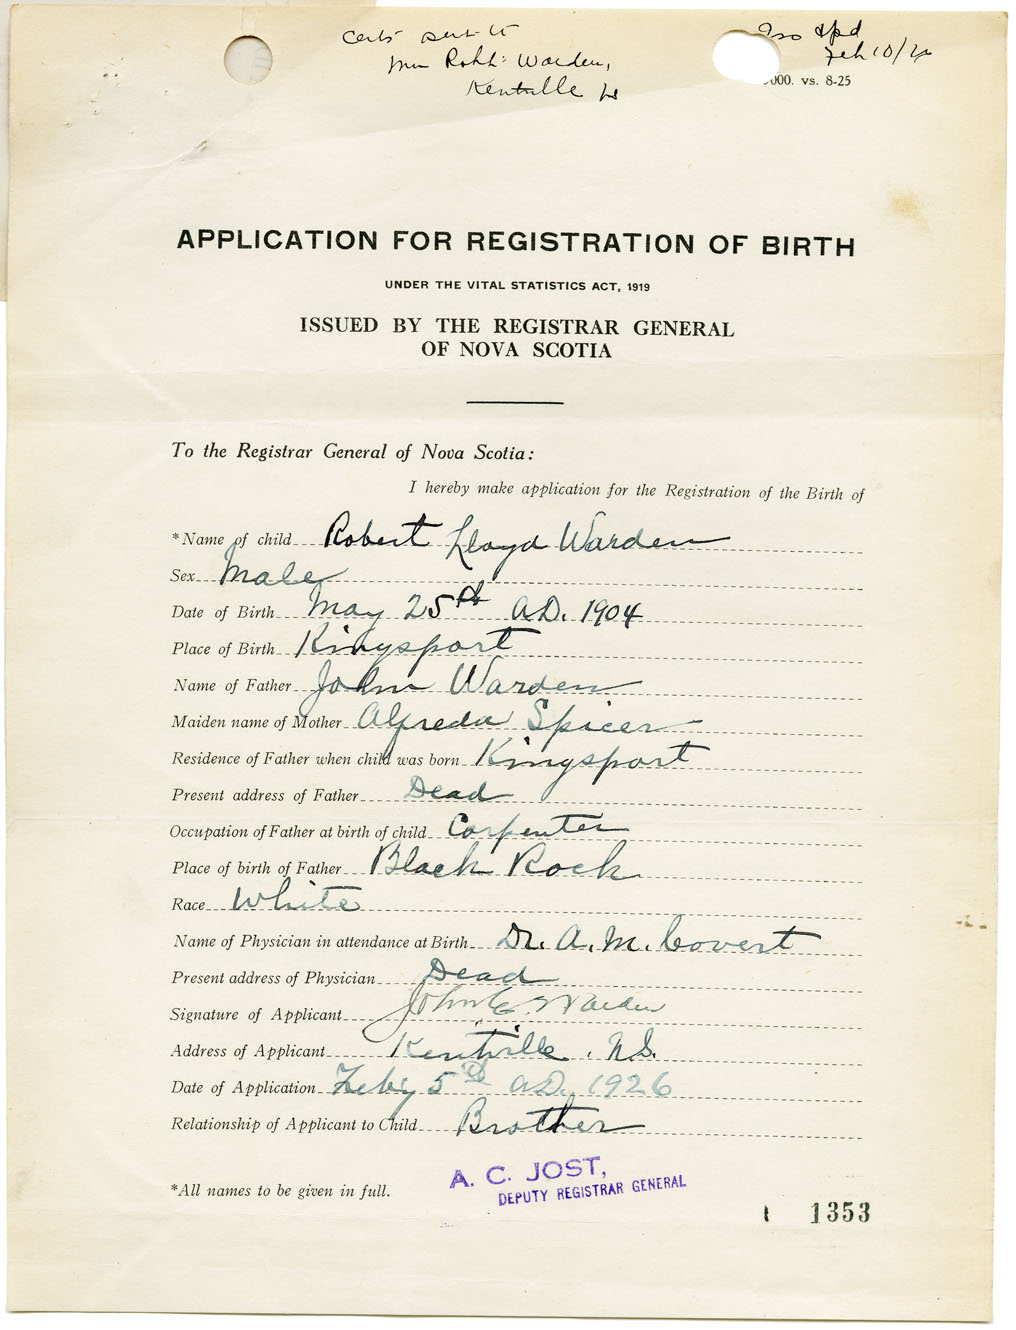 Cert sent to
Robt. Warden,
Kentville
Feb 10/26
000. vs. 8-25
APPLICATION FOR REGISTRATION OF BIRTH
UNDER THE VITAL STATISTICS ACT, 1919
ISSUED BY THE REGISTRAR GENERAL
OF NOVA SCOTIA
To the Registrar General of Nova Scotia:
I hereby make application for the Registration of the Birth of
*Name of child Robert Lloyd Warden
Sex Male
Date of Birth May 25th A.D. 1904
Place of Birth Kingsport
Name of Father John Warden
Maiden name of Mother Alfreda Spicer
Residence of Father when child was born Kingsport
Present address of Father Dead
Occupation of Father at birth of child Carpenter
Place of birth of Father Black Rock
Race White
Name of Physician in attendance at Birth Dr. A. M. Covert
Present address of Physician Dead
Signature of Applicant John C. Warden
Address of Applicant Kentville. N.S.
Date of Application Feby 5th A.D. 1926
Relationship of Applicant to Child Brother
*All names to be given in full.
A. C. JOST,
DEPUTY REGISTRAR GENERAL
1353